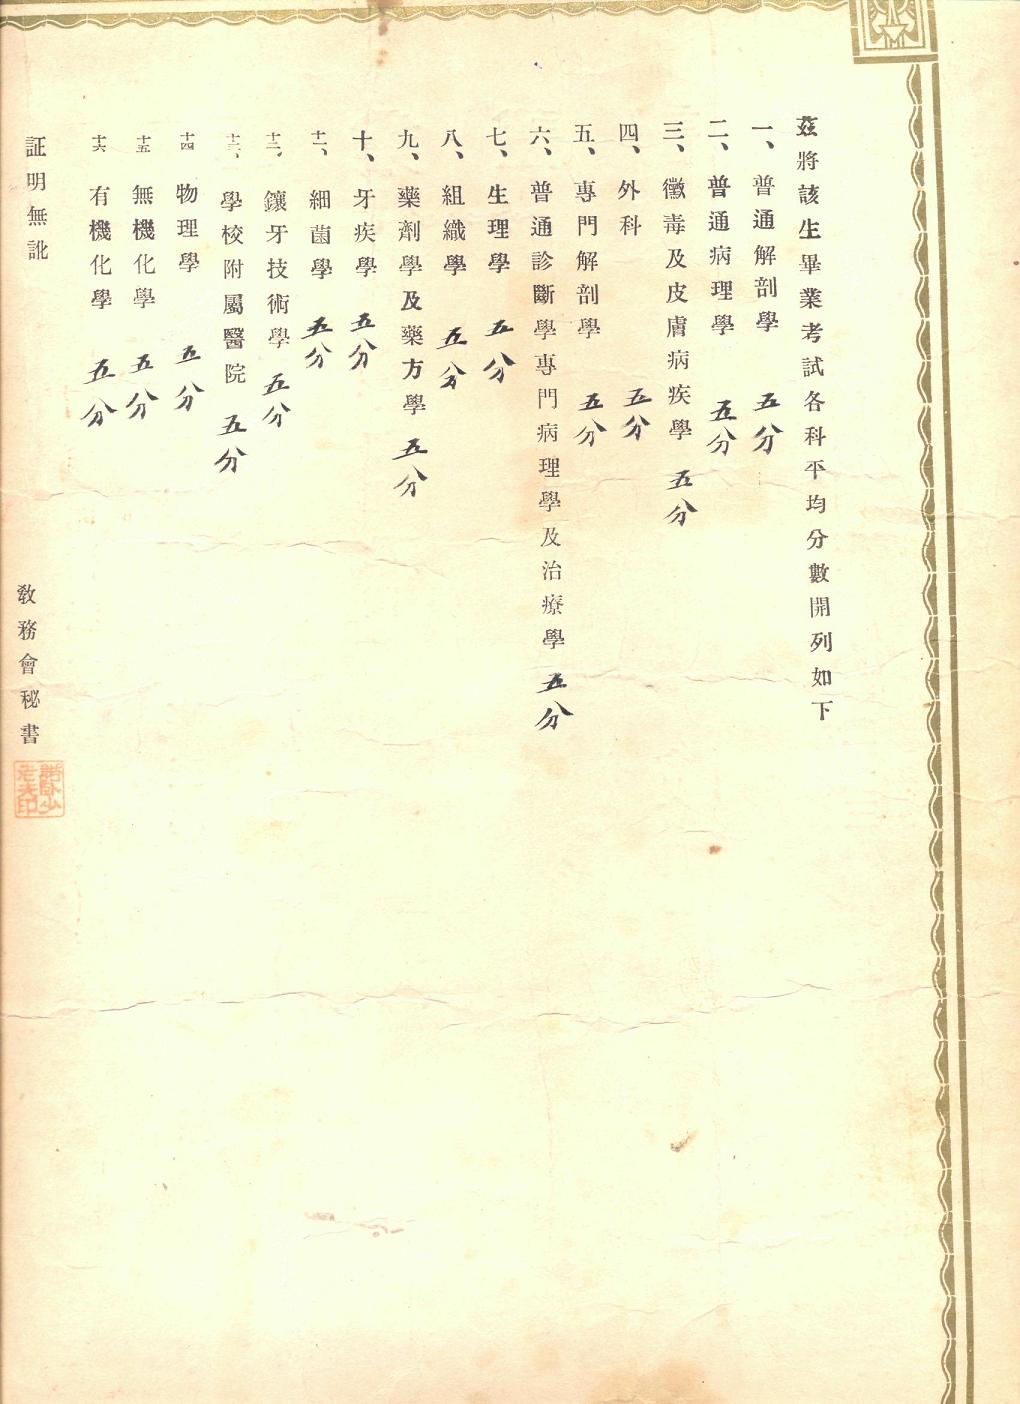 茲將該生畢業考試各科平均分數開列如下
一、普通解剖學 五分
二、普通病理學 五分
三、黴毒及皮膚病疾學 五分
四、外科 五分
五、專門解剖學 五分
六、普通診斷學專門病理學及治療學 五分
七、生理學 五分
八、組織學 五分
九、藥劑學及藥方學 五分
十、牙疾學 五分
十一、細菌學 五分
十二、鑲牙技術學 五分
十三、學校附屬醫院 五分
十四 物理學 五分
十五 無機化學 五分
十六 有機化學 五分
証明無訛
敎務會秘書